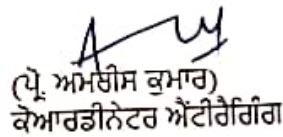 (ਪ੍ਰੋ. ਅਮਬੀਸ ਕੁਮਾਰ)
ਕੋਆਰਡੀਨੇਟਰ ਐਂਟੀਰੈਗਿੰਗ